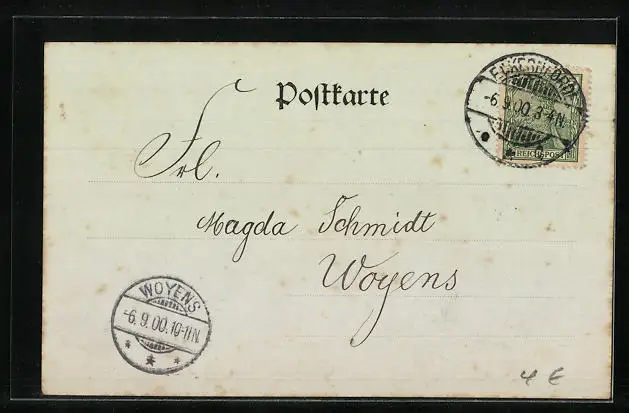 Postkarte
ECKERNFÖRDE
-6.9.00.3-4N.
REICHSPOST
Frl.
Magda Schmidt
Woyens
WOYENS
-6.9.00.10-11N.
4 €